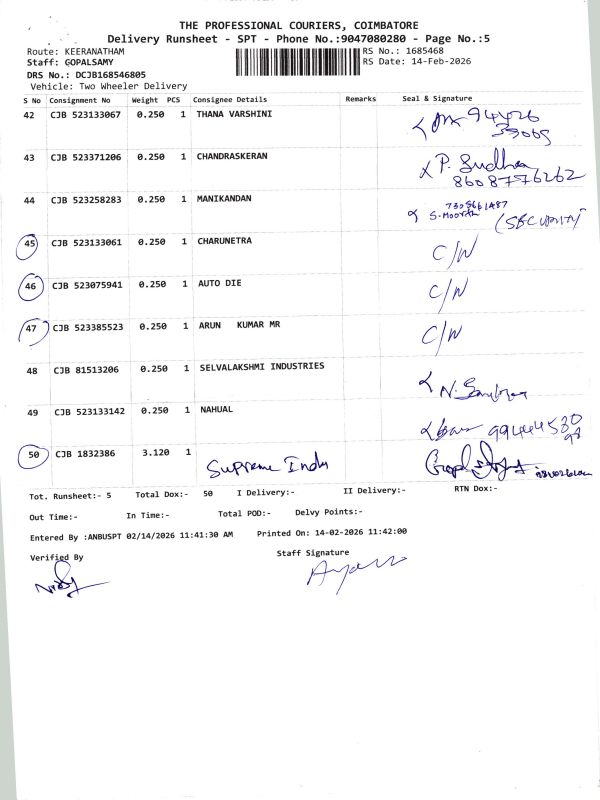 THE PROFESSIONAL COURIERS, COIMBATORE
Delivery Runsheet - SPT - Phone No.:9047080280 - Page No.:5
Route: KEERANATHAM RS No.: 1685468
Staff: GOPALSAMY RS Date: 14-Feb-2026
DRS No.: DCJB168546805
Vehicle: Two Wheeler Delivery
S No Consignment No Weight PCS Consignee Details Remarks Seal & Signature
42 CJB 523133067 0.250 1 THANA VARSHINI 94426
39065
43 CJB 523371206 0.250 1 CHANDRASKERAN P. Sudha
8608776262
44 CJB 523258283 0.250 1 MANIKANDAN
S. Moorthi (SECURITY)
45 CJB 523133061 0.250 1 CHARUNETRA C/W
46 CJB 523075941 0.250 1 AUTO DIE C/W
47 CJB 523385523 0.250 1 ARUN KUMAR MR C/W
48 CJB 81513206 0.250 1 SELVALAKSHMI INDUSTRIES
49 CJB 523133142 0.250 1 NAHUAL 99444530
98
50 CJB 1832386 3.120 1 Supreme Indu
Tot. Runsheet:- 5 Total Dox:- 50 I Delivery:- II Delivery:- RTN Dox:-
Out Time:- In Time:- Total POD:- Delvy Points:-
Entered By :ANBUSPT 02/14/2026 11:41:30 AM Printed On: 14-02-2026 11:42:00
Verified By Staff Signature